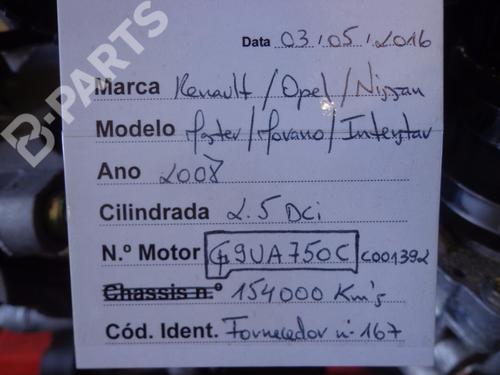 B-PARTS
Data 03/05/2016
Marca Renault/Opel/Nissan
Modelo Master/Movano/Interstar
Ano 2008
Cilindrada 2.5 DCi
N.º Motor G9UA750C C001392
Chassis n.º 154000 Km's
Cód. Ident. Fornecedor nº 167